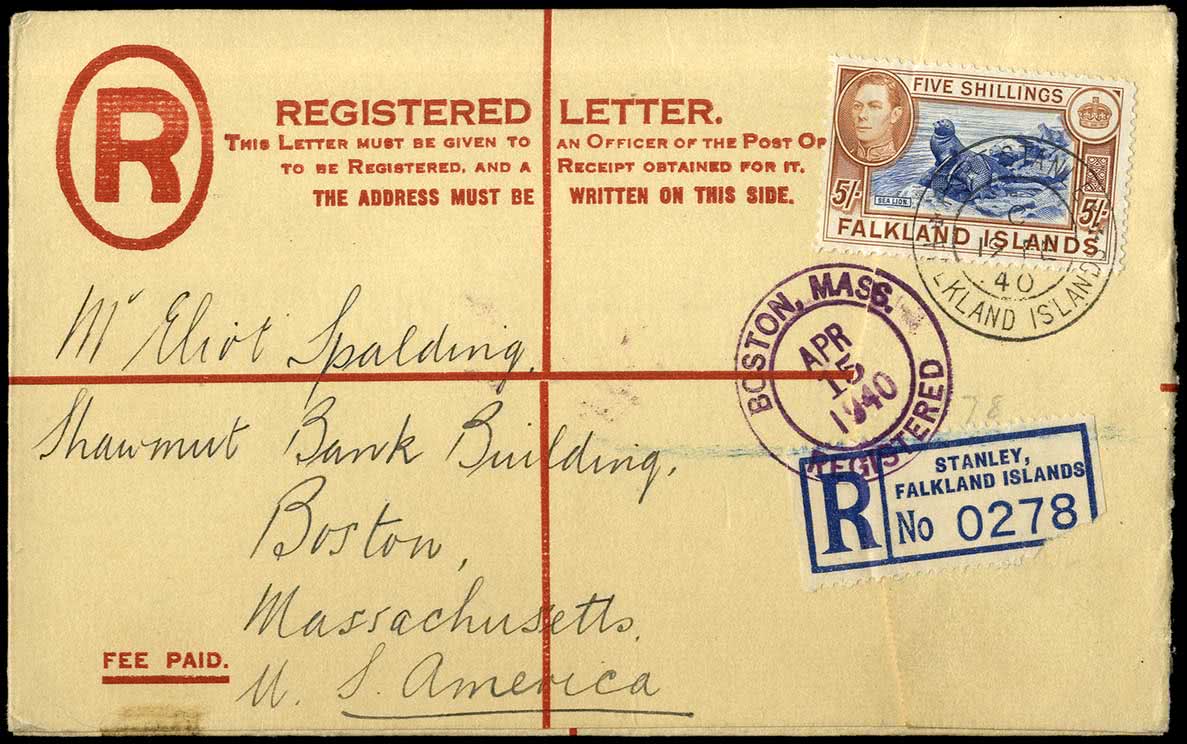 R
REGISTERED LETTER.
THIS LETTER MUST BE GIVEN TO AN OFFICER OF THE POST OF
TO BE REGISTERED, AND A RECEIPT OBTAINED FOR IT.
THE ADDRESS MUST BE WRITTEN ON THIS SIDE.
FIVE SHILLINGS
SEA LION.
5/- 5/-
FALKLAND ISLANDS
STAN
C
FE
40
FALKLAND ISLANDS
BOSTON, MASS.
APR
15
1940
REGISTERED
Mr Eliot Spalding,
Shawmut Bank Building,
Boston,
Massachusetts,
U. S. America
78
R
STANLEY,
FALKLAND ISLANDS
No 0278
FEE PAID.